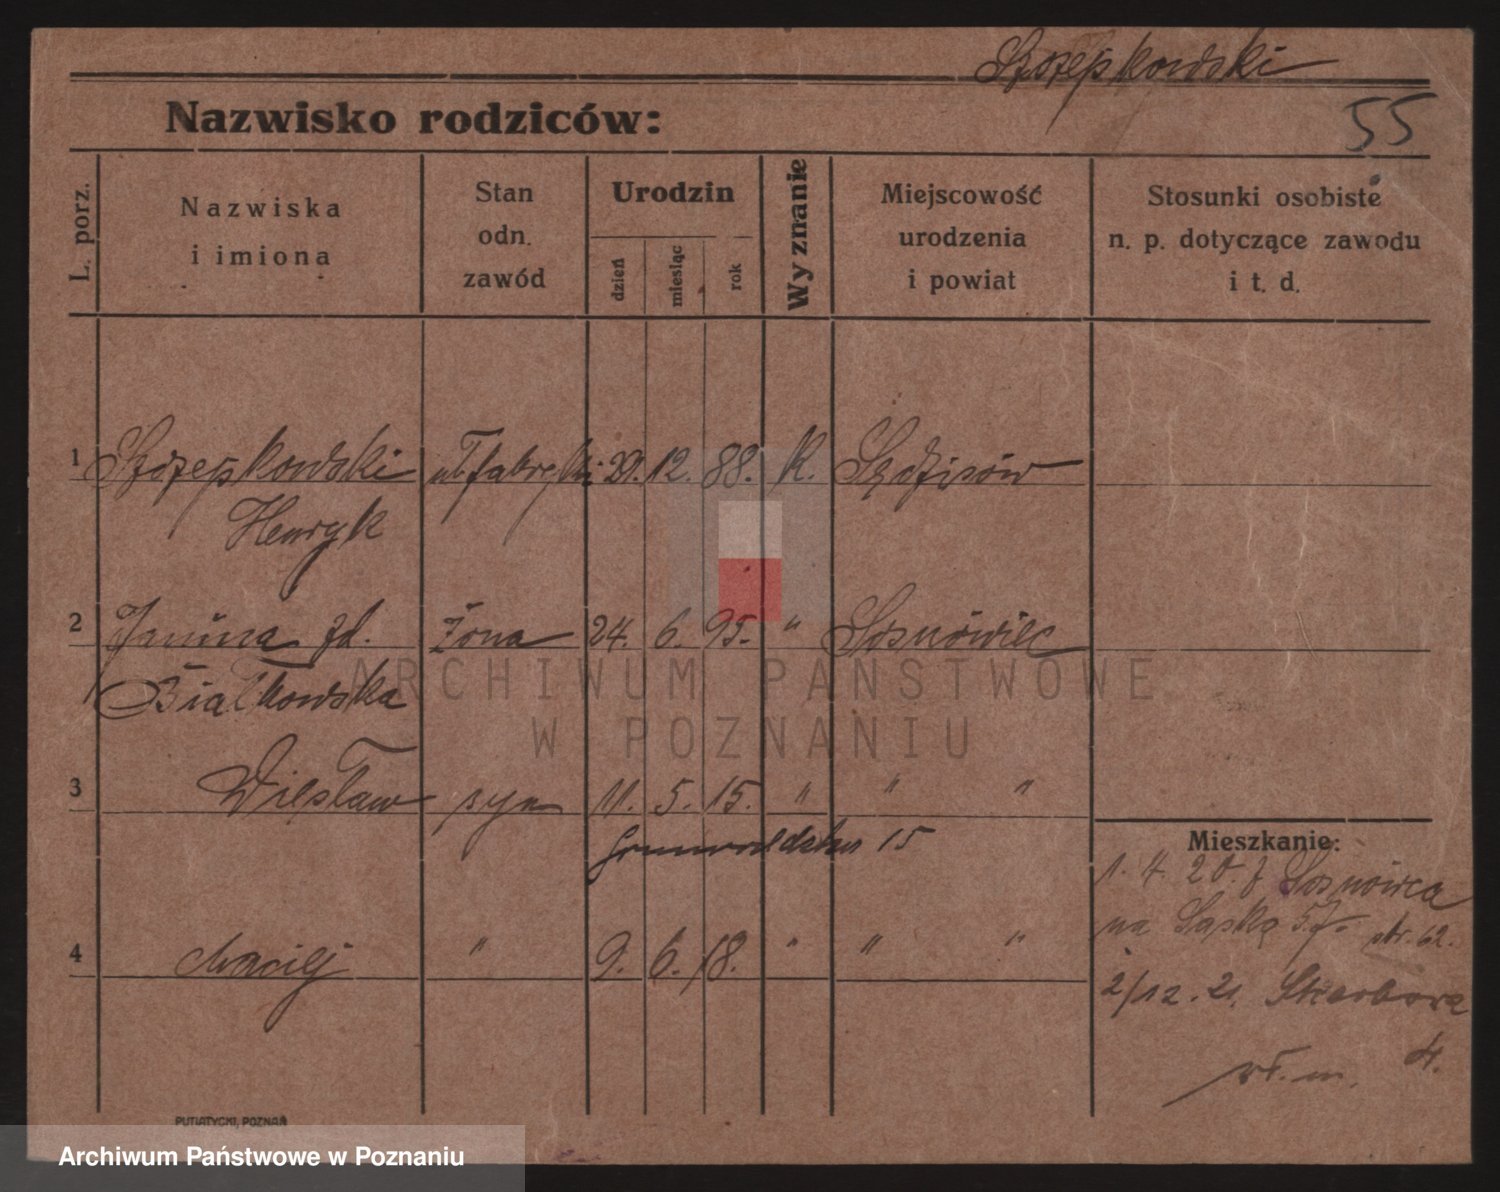 Szczepkowski
55
Nazwisko rodziców:
L. porz.
Nazwiska
i imiona
Stan
odn.
zawód
Urodzin
dzień
miesiąc
rok
Wyznanie
Miejscowość
urodzenia
i powiat
Stosunki osobiste
n. p. dotyczące zawodu
i t. d.
1 Szczepkowski 29. 12. 88. K.
Henryk
2 Janina zd. żona 24. 6. 95. " Sosnowiec
Białkowska
ARCHIWUM PAŃSTWOWE
W POZNANIU
3 Wiesław syn 11. 5. 15. " " "
15
Mieszkanie:
1. 4. 20. z Sosnowca
na Śląską 57 str. 62.
4 Maciej " 9. 6. 18. " " "
2/12. 21. Skarbowa
4.
wł. m.
PUTIATYCKI, POZNAŃ
Archiwum Państwowe w Poznaniu